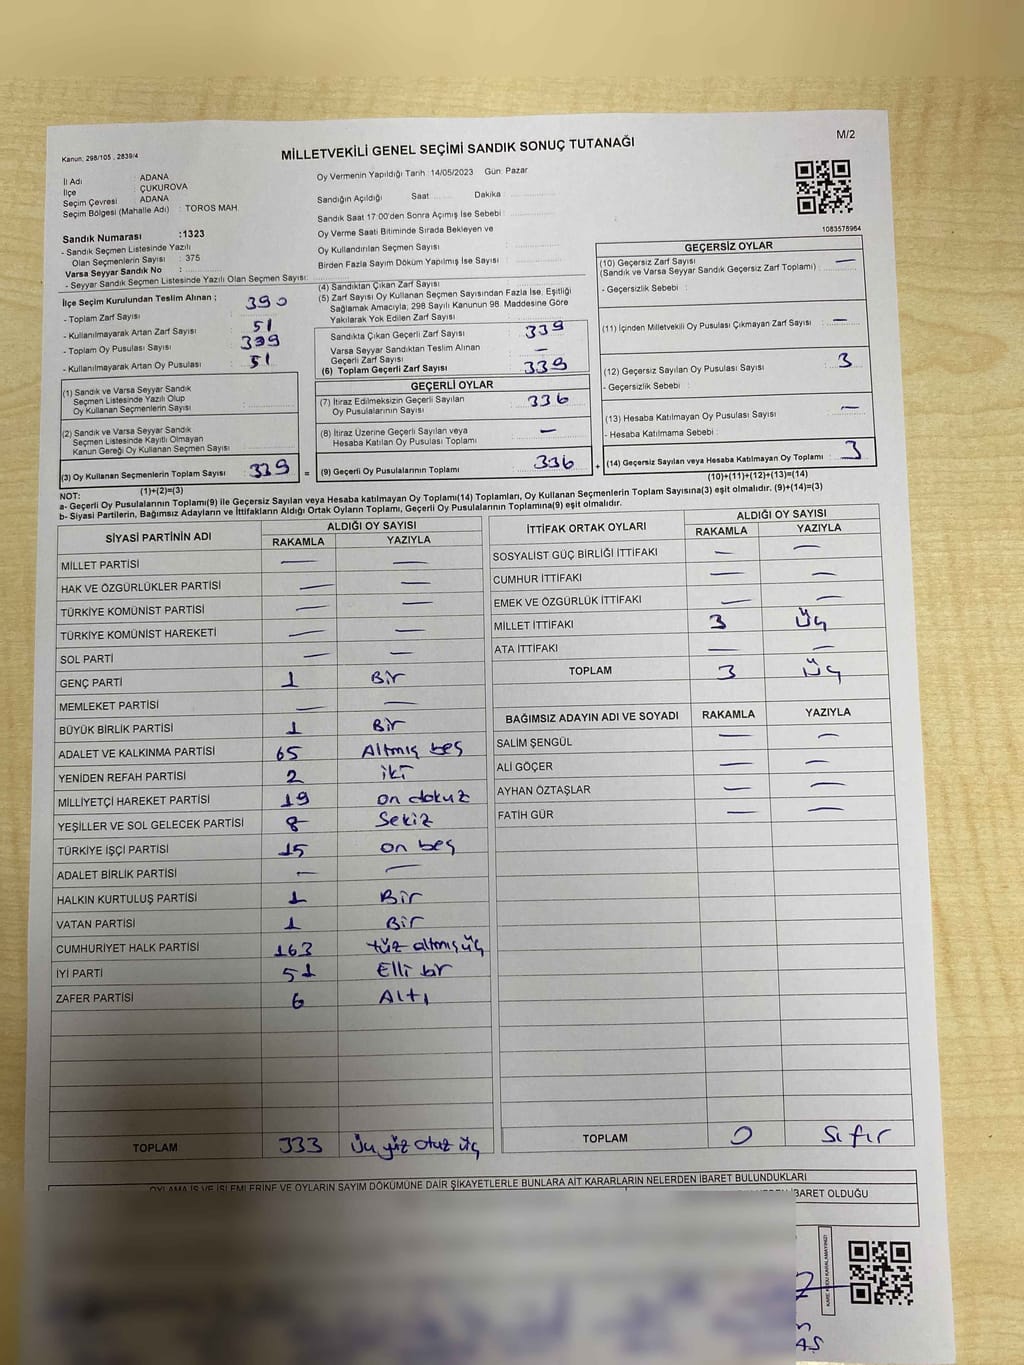 Kanun: 298/105 , 2839/4
MİLLETVEKİLİ GENEL SEÇİMİ SANDIK SONUÇ TUTANAĞI
M/2
İl Adı : ADANA
İlçe : ÇUKUROVA
Seçim Çevresi : ADANA
Seçim Bölgesi (Mahalle Adı) : TOROS MAH.
Oy Vermenin Yapıldığı Tarih :14/05/2023 Gün: Pazar
Sandığın Açıldığı Saat Dakika
Sandık Saat 17:00'den Sonra Açımış İse Sebebi :
Oy Verme Saati Bitiminde Sırada Bekleyen ve
Oy Kullandırılan Seçmen Sayısı :
Birden Fazla Sayım Döküm Yapılmış İse Sayısı :
1083578964
Sandık Numarası :1323
- Sandık Seçmen Listesinde Yazılı
Olan Seçmenlerin Sayısı : 375
Varsa Seyyar Sandık No :
- Seyyar Sandık Seçmen Listesinde Yazılı Olan Seçmen Sayısı:
İlçe Seçim Kurulundan Teslim Alınan ;
- Toplam Zarf Sayısı : 390
- Kullanılmayarak Artan Zarf Sayısı : 51
- Toplam Oy Pusulası Sayısı : 399
- Kullanılmayarak Artan Oy Pusulası : 51
(1) Sandık ve Varsa Seyyar Sandık
Seçmen Listesinde Yazılı Olup
Oy Kullanan Seçmenlerin Sayısı :
(2) Sandık ve Varsa Seyyar Sandık
Seçmen Listesinde Kayıtlı Olmayan
Kanun Gereği Oy Kullanan Seçmen Sayısı :
(3) Oy Kullanan Seçmenlerin Toplam Sayısı : 339 =
(1)+(2)=(3)
(4) Sandıktan Çıkan Zarf Sayısı :
(5) Zarf Sayısı Oy Kullanan Seçmen Sayısından Fazla İse, Eşitliği
Sağlamak Amacıyla, 298 Sayılı Kanunun 98. Maddesine Göre
Yakılarak Yok Edilen Zarf Sayısı :
Sandıkta Çıkan Geçerli Zarf Sayısı : 339
Varsa Seyyar Sandıktan Teslim Alınan
Geçerli Zarf Sayısı : —
(6) Toplam Geçerli Zarf Sayısı : 339
GEÇERLİ OYLAR
(7) İtiraz Edilmeksizin Geçerli Sayılan
Oy Pusulalarının Sayısı : 336
(8) İtiraz Üzerine Geçerli Sayılan veya
Hesaba Katılan Oy Pusulası Toplamı : —
(9) Geçerli Oy Pusulalarının Toplamı : 336 +
GEÇERSİZ OYLAR
(10) Geçersiz Zarf Sayısı —
(Sandık ve Varsa Seyyar Sandık Geçersiz Zarf Toplamı) :
- Geçersizlik Sebebi :
(11) İçinden Milletvekili Oy Pusulası Çıkmayan Zarf Sayısı : —
(12) Geçersiz Sayılan Oy Pusulası Sayısı : 3
- Geçersizlik Sebebi :
(13) Hesaba Katılmayan Oy Pusulası Sayısı : —
- Hesaba Katılmama Sebebi :
(14) Geçersiz Sayılan veya Hesaba Katılmayan Oy Toplamı : 3
(10)+(11)+(12)+(13)=(14)
NOT:
a- Geçerli Oy Pusulalarının Toplamı(9) ile Geçersiz Sayılan veya Hesaba katılmayan Oy Toplamı(14) Toplamları, Oy Kullanan Seçmenlerin Toplam Sayısına(3) eşit olmalıdır. (9)+(14)=(3)
b- Siyasi Partilerin, Bağımsız Adayların ve İttifakların Aldığı Ortak Oyların Toplamı, Geçerli Oy Pusulalarının Toplamına(9) eşit olmalıdır.
SİYASİ PARTİNİN ADI
ALDIĞI OY SAYISI
RAKAMLA YAZIYLA
MİLLET PARTİSİ — —
HAK VE ÖZGÜRLÜKLER PARTİSİ — —
TÜRKİYE KOMÜNİST PARTİSİ — —
TÜRKİYE KOMÜNİST HAREKETİ — —
SOL PARTİ — —
GENÇ PARTİ 1 Bir
MEMLEKET PARTİSİ — —
BÜYÜK BİRLİK PARTİSİ 1 Bir
ADALET VE KALKINMA PARTİSİ 65 Altmış beş
YENİDEN REFAH PARTİSİ 2 iki
MİLLİYETÇİ HAREKET PARTİSİ 19 on dokuz
YEŞİLLER VE SOL GELECEK PARTİSİ 8 Sekiz
TÜRKİYE İŞÇİ PARTİSİ 15 on beş
ADALET BİRLİK PARTİSİ — —
HALKIN KURTULUŞ PARTİSİ 1 Bir
VATAN PARTİSİ 1 Bir
CUMHURİYET HALK PARTİSİ 163 yüz altmış üç
İYİ PARTİ 51 Elli bir
ZAFER PARTİSİ 6 Altı
TOPLAM 333 Üç yüz otuz üç
İTTİFAK ORTAK OYLARI
ALDIĞI OY SAYISI
RAKAMLA YAZIYLA
SOSYALİST GÜÇ BİRLİĞİ İTTİFAKI — —
CUMHUR İTTİFAKI — —
EMEK VE ÖZGÜRLÜK İTTİFAKI — —
MİLLET İTTİFAKI 3 Üç
ATA İTTİFAKI — —
TOPLAM 3 Üç
BAĞIMSIZ ADAYIN ADI VE SOYADI RAKAMLA YAZIYLA
SALİM ŞENGÜL — —
ALİ GÖÇER — —
AYHAN ÖZTAŞLAR — —
FATİH GÜR — —
TOPLAM 0 Sıfır
OYLAMA İŞ VE İŞLEMLERİNE VE OYLARIN SAYIM DÖKÜMÜNE DAİR ŞİKAYETLERLE BUNLARA AİT KARARLARIN NELERDEN İBARET BULUNDUKLARI
İBARET OLDUĞU